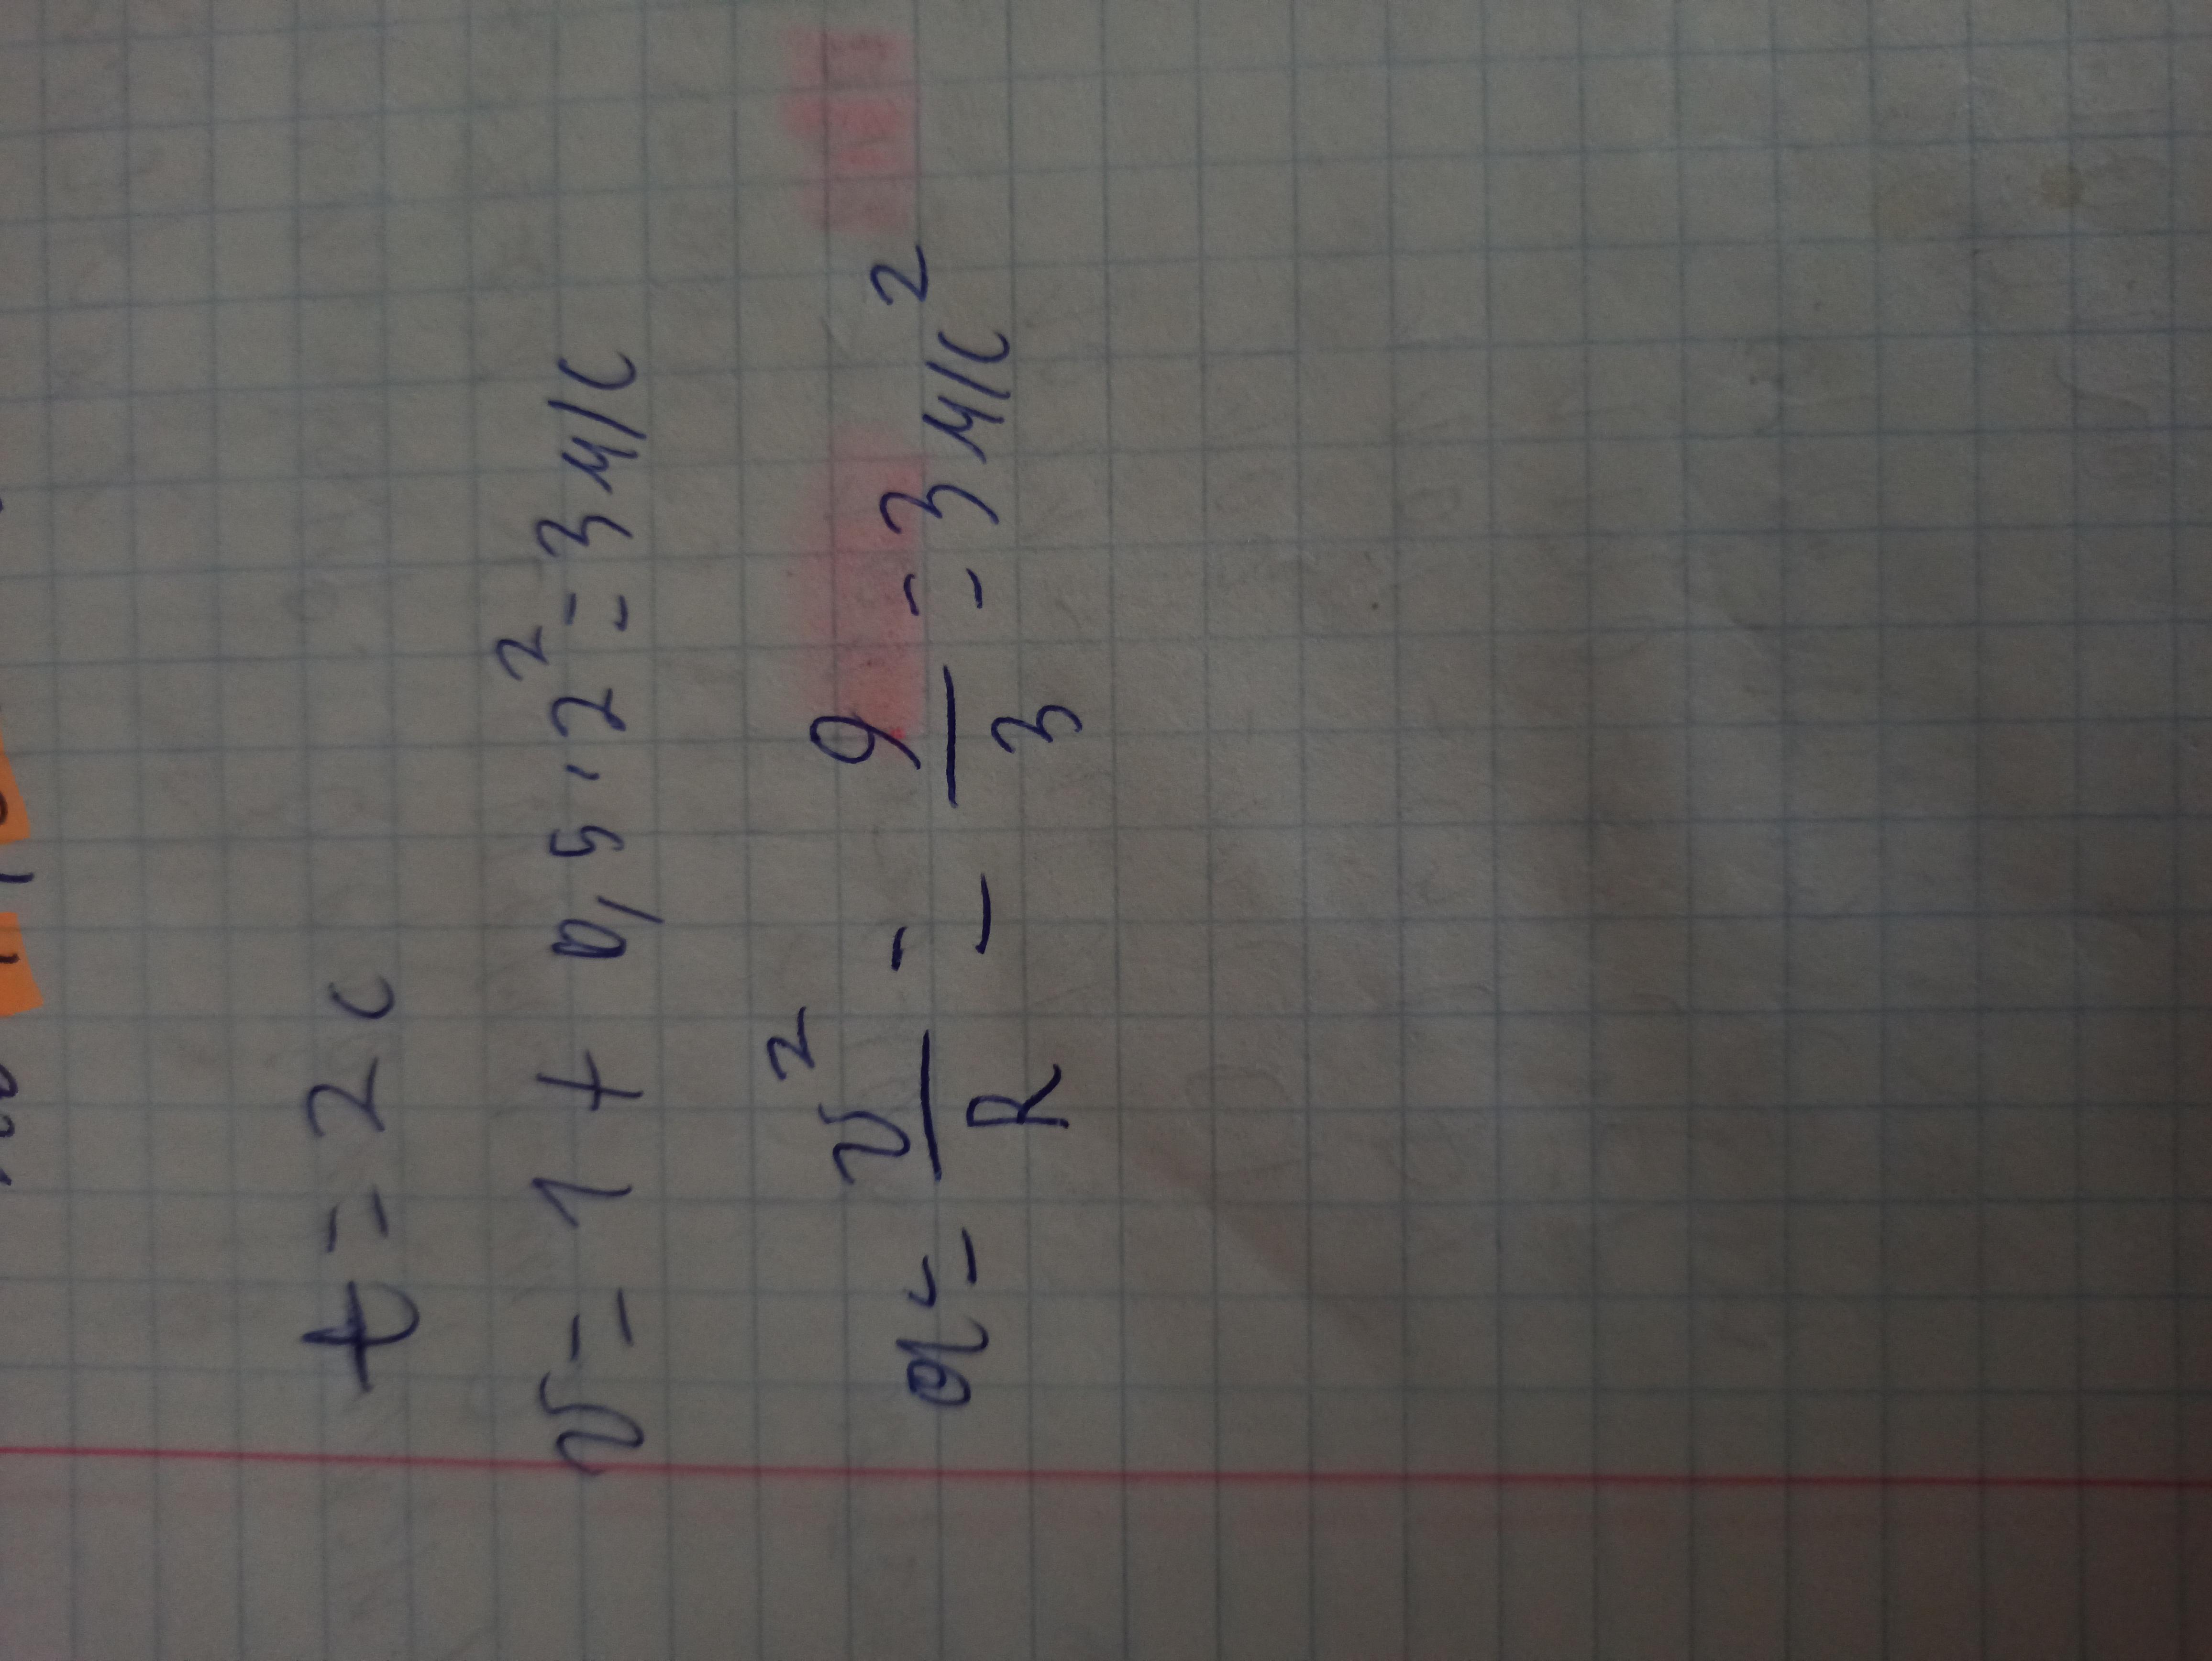 t = 2 с
v = 1 + 0,5 · 2² = 3 м/с
a = v²/R = 9/3 = 3 м/с²